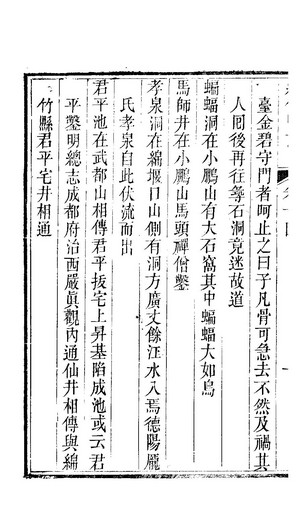 臺金碧守門者呵止之曰子凡骨可急去不然及禍其
人囘後再往尋石洞竟迷故道
蝙蝠洞在小鵬山有大石窩其中蝙蝠大如烏
馬師井在小鵬山馬頭禪僧鑿
孝泉洞在綿堰口山側有洞方廣丈餘汪水入焉德陽龐
氏孝泉自此伏流而出
君平池在武都山相傳君平拔宅上昇基陷成池或云君
平鑿明總志成都府治西嚴眞觀內通仙井相傳與綿
竹縣君平宅井相通